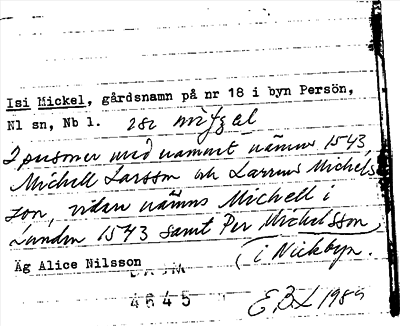 Isi Mickel, gårdsnamn på nr 18 i byn Persön,
Nl sn, Nb l.
2 personer med namnet nämns 1543,
Michell Larsson och Larens Michels
son, sidan nämns Michell i
Sanden 1543 samt Per Michelsson
Äg Alice Nilsson (i Nickbyn.
DAUM
4645 EBL 198